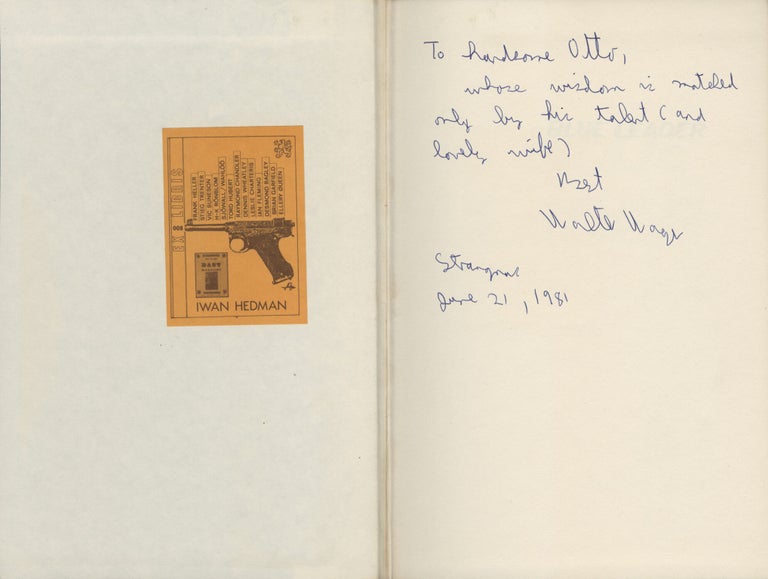 EX LIBRIS
008
FRANK HELLER
STIEG TRENTER
VIC SUNESON
H-K RÖNBLOM
SJÖWALL/WAHLÖÖ
TORD HUBERT
RAYMOND CHANDLER
DENNIS WHEATLEY
LESLIE CHARTERIS
IAN FLEMING
DESMOND BAGLEY
BRIAN GARFIELD
ELLERY QUEEN
DAST
MAGAZINE
IWAN HEDMAN
To handsome Otto,
whose wisdom is matched
only by his talent (and
lovely wife)
Best
Walter Wager
Strangnas
June 21, 1981
BLUE LEADER